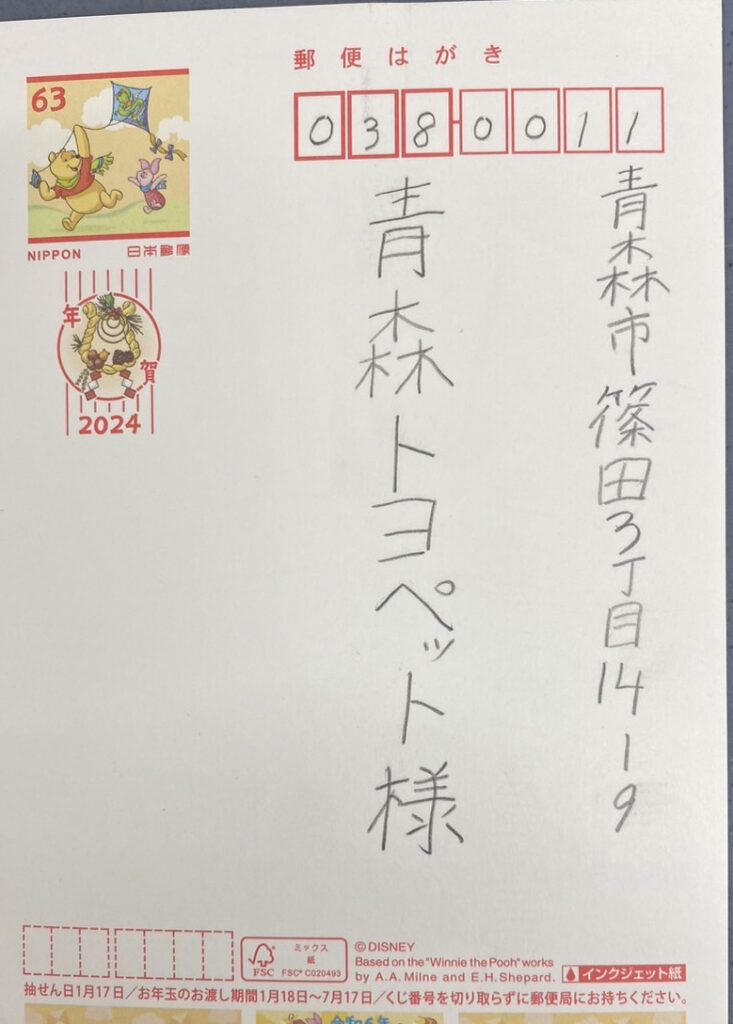 郵便はがき
63
NIPPON 日本郵便
年賀
2024
038-0011
青森市篠田3丁目14-9
青森トヨペット様
FSC
ミックス
紙
FSC® C020493
©DISNEY
Based on the "Winnie the Pooh" works
by A.A. Milne and E.H. Shepard.
インクジェット紙
抽せん日1月17日/お年玉のお渡し期間1月18日〜7月17日/くじ番号を切り取らずに郵便局にお持ちください。
令和6年